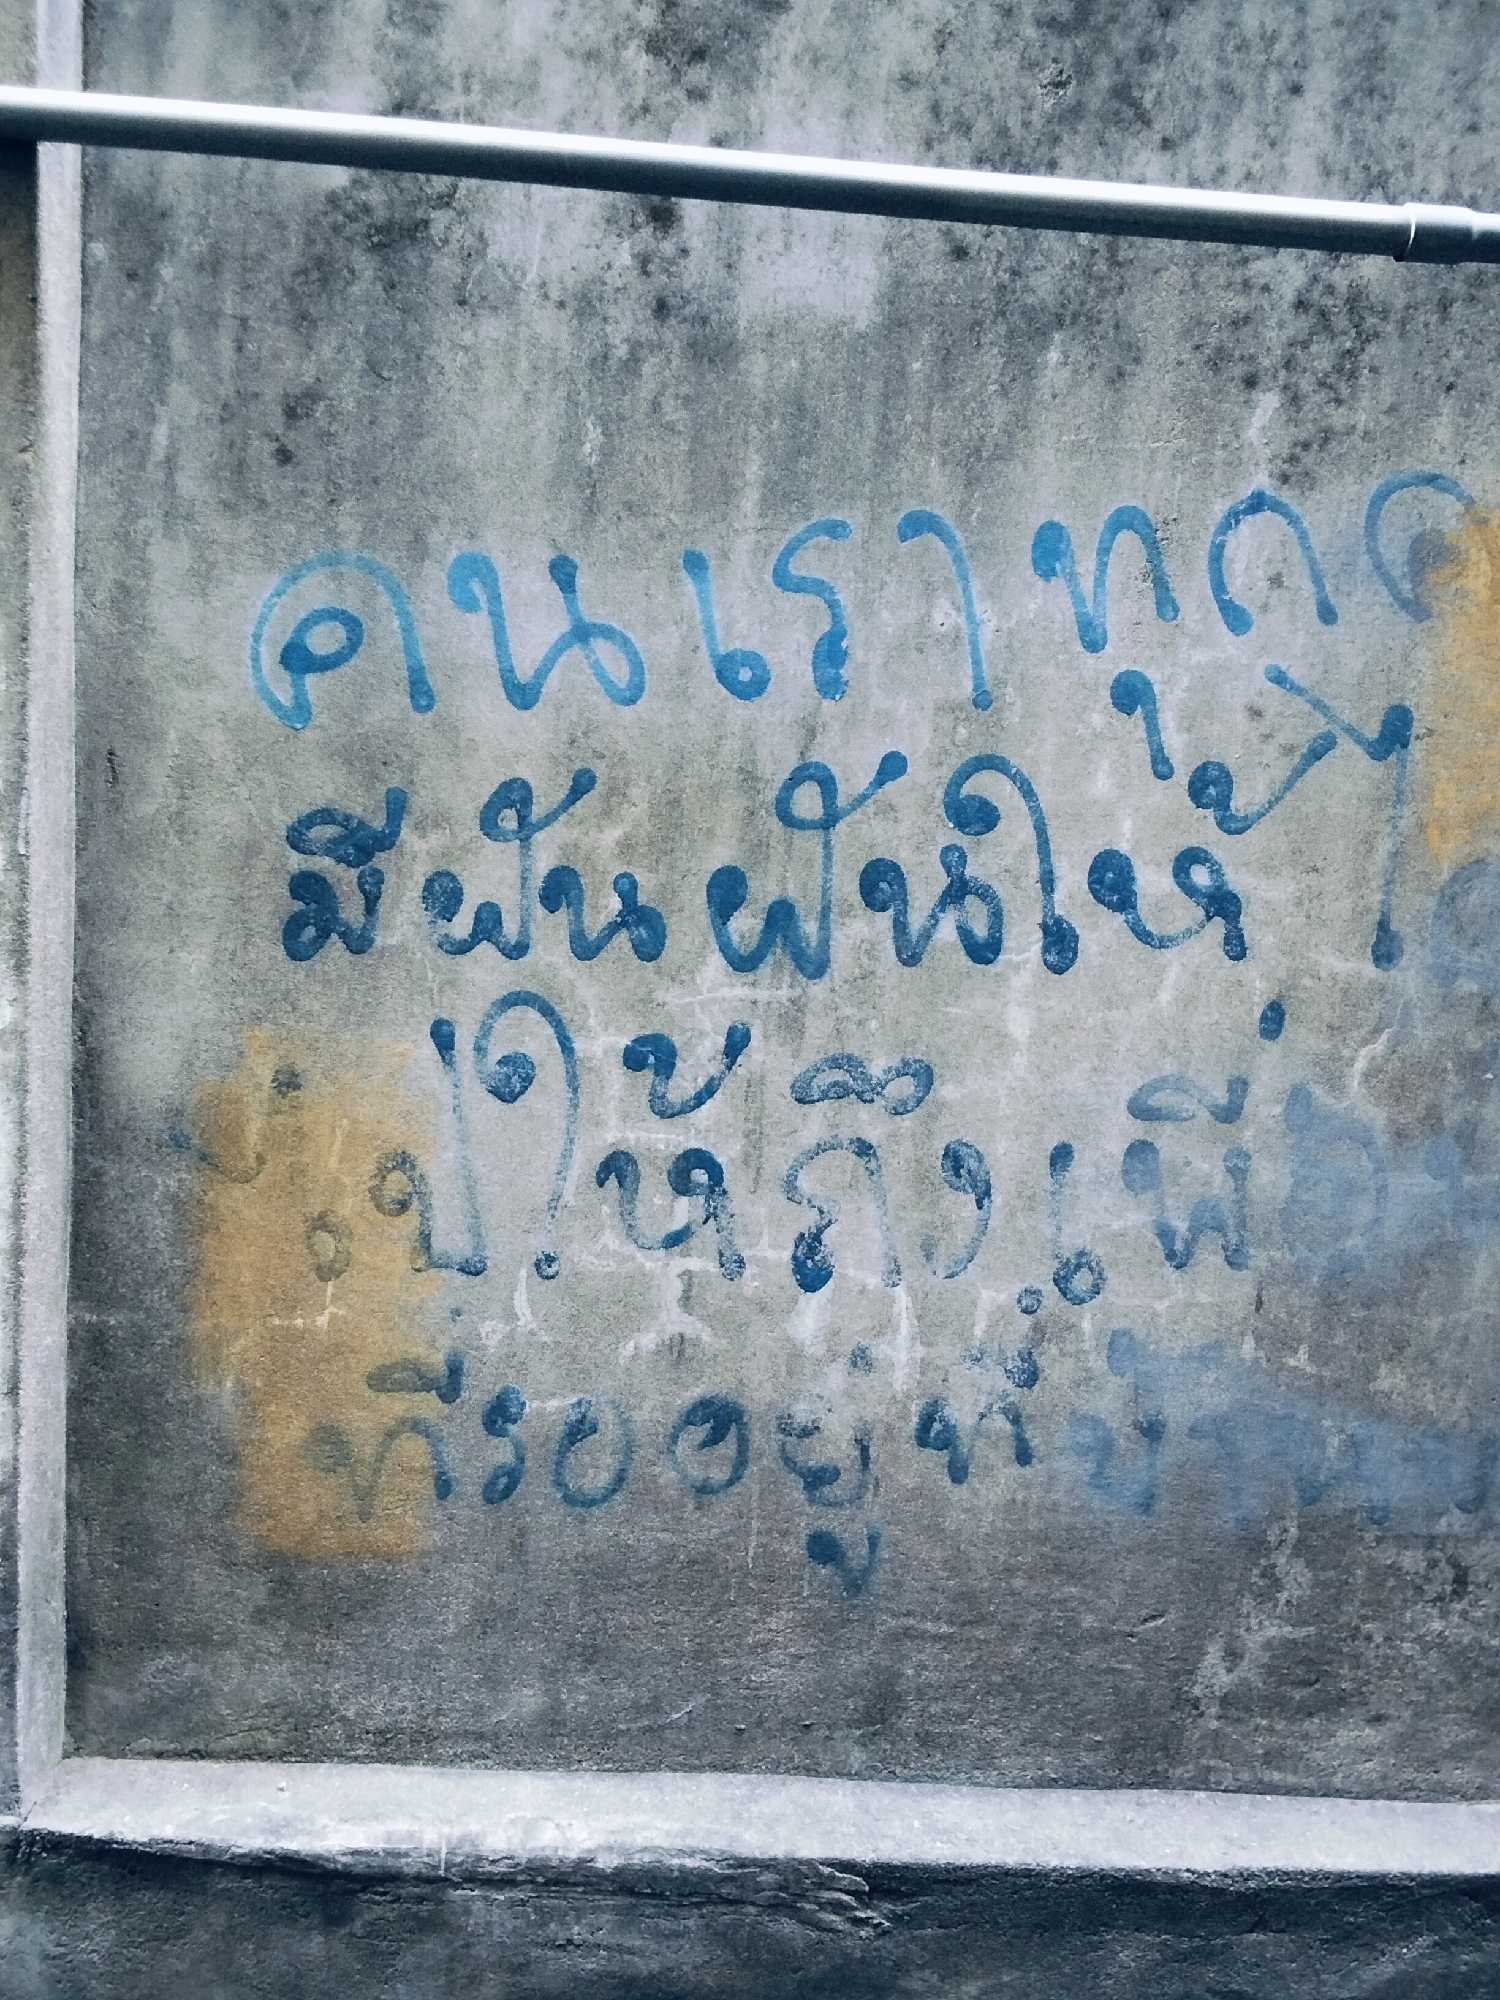 คนเราทุก
มีฝันฝันให้ไ
ไปให้ถึงเพื่อ
ที่รออยู่ที่